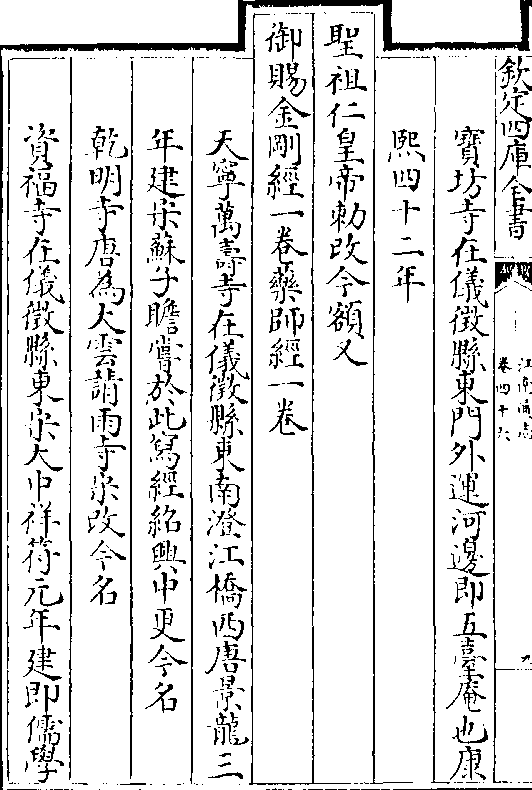 欽定四庫全書
江南通志
卷四十六
九
寶坊寺在儀徵縣東門外運河邊即五臺庵也康
熙四十二年
聖祖仁皇帝勅改今額又
御賜金剛經一卷藥師經一卷
天寧萬壽寺在儀徵縣東南澄江橋西唐景龍三
年建宋蘇子瞻嘗於此寫經紹興中更今名
乾明寺唐為大雲請雨寺宋改今名
資福寺在儀徵縣東宋大中祥符元年建即儒學